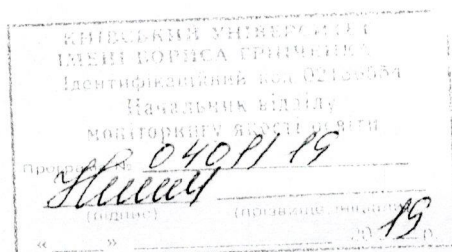 КИЇВСЬКИЙ УНІВЕРСИТЕТ
ІМЕНІ БОРИСА ГРІНЧЕНКА
Ідентифікаційний код 02136554
Начальник відділу
моніторингу якості освіти
Програма № 0408/19
(підпис) (прізвище, ініціали)
« » 2019 р.